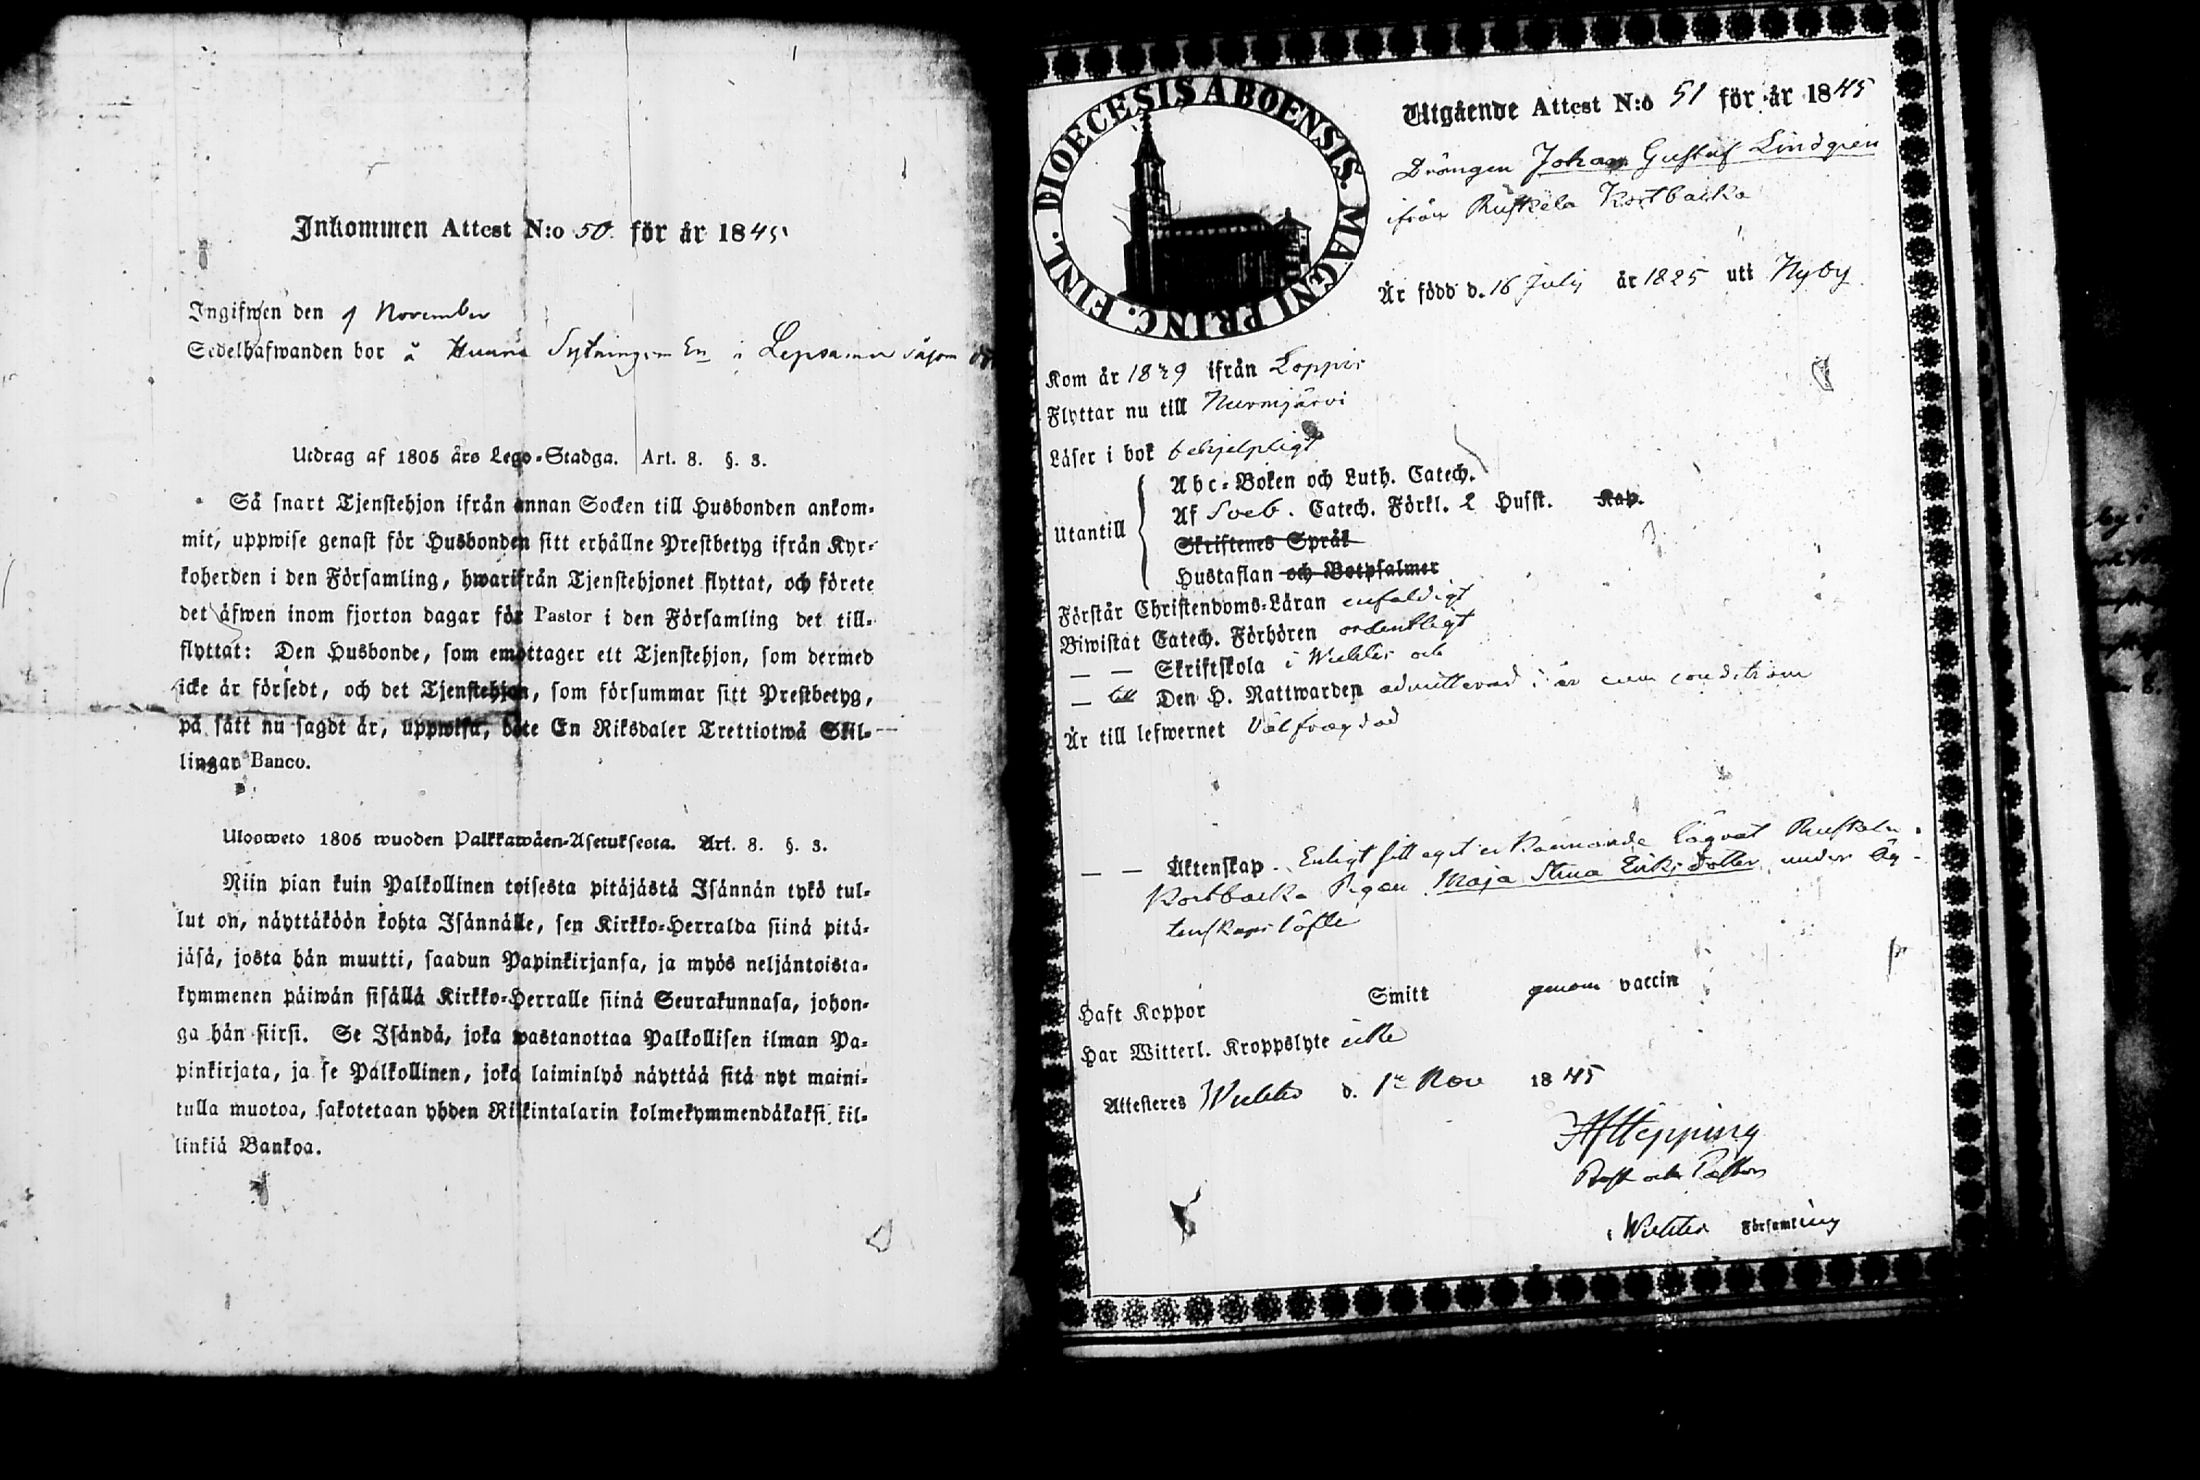 Inkommen Attest N:o 50 för år 1845
Ingifwen den 9 November
Sedelhafwanden bor å Sytningen i Lepsama såsom
Utdrag af 1805 års Lego-Stadga. Art. 8. §. 3.
Så snart Tjenstehjon ifrån annan Socken till Husbonden ankom-
mit, uppwise genast för Husbonden sitt erhållne Prestbetyg ifrån Kyr-
koherden i den Församling, hwarifrån Tjenstehjonet flyttat, och förete
det äfwen inom fjorton dagar för Pastor i den Församling det till-
flyttat: Den Husbonde, som emottager ett Tjenstehjon, som dermed
icke är försedt, och det Tjenstehjon, som försummar sitt Prestbetyg,
på sätt nu sagdt är, uppwisa, böte En Riksdaler Trettiotwå Skil-
lingar Banco.
Ulosweto 1805 wuoden Palkkawäen-Asetuksesta. Art. 8. §. 3.
Niin pian kuin Palkollinen toisesta pitäjästä Isännän tykö tul-
lut on, näyttäköön kohta Isännälle, sen Kirkko-Herralda siinä pitä-
jäsä, josta hän muutti, saadun Papinkirjansa, ja myös neljäntoista-
kymmenen päiwän sisällä Kirkko-Herralle siinä Seurakunnasa, johon-
ga hän siirsi. Se Isändä, joka wastanottaa Palkollisen ilman Pa-
pinkirjata, ja se Palkollinen, joka laiminlyö näyttää sitä nyt maini-
tulla muotoa, sakotetaan yhden Riikintalarin kolmekymmendäkaksi kil-
linkiä Bankoa.
DIOECESIS ABOENSIS. MAGNI PRINC. FINL.
Utgående Attest N:o 51 för år 1845
Drängen Johan Gustaf Lindgren
ifrån Ruskela Kortbacka
Är född d. 16 Julij år 1825 uti Nyby
Kom år 1829 ifrån Loppis
Flyttar nu till Nurmijärvi
Läser i bok behjelpligt
Utantill
Abc-Boken och Luth. Catech.
Af Sveb. Catech. Förkl. 2 Hufst. Kap.
Skriftenes Språk
Hustaflan och Botpsalmer
Förstår Christendoms-Läran enfaldigt
Biwistat Catech. Förhören ordentligt
— — Skriftskola i Wichtis och
— till Den H. Nattwarden admitterad i år cum conditione
Är till lefwernet Välfräjdad
— — Äktenskap. Enligt sitt eget erkännande lägrat Ruskela
Kortbacka Pigan Maja Stina Eriksdotter under äg-
tenskapslöfte
Haft Koppor Smitt genom vaccin
Har Witterl. Kroppslyte icke
Attesteres Wichtis d. 1 Nov 1845
Hepping
Prost och Pastor
i Wichtis Församling